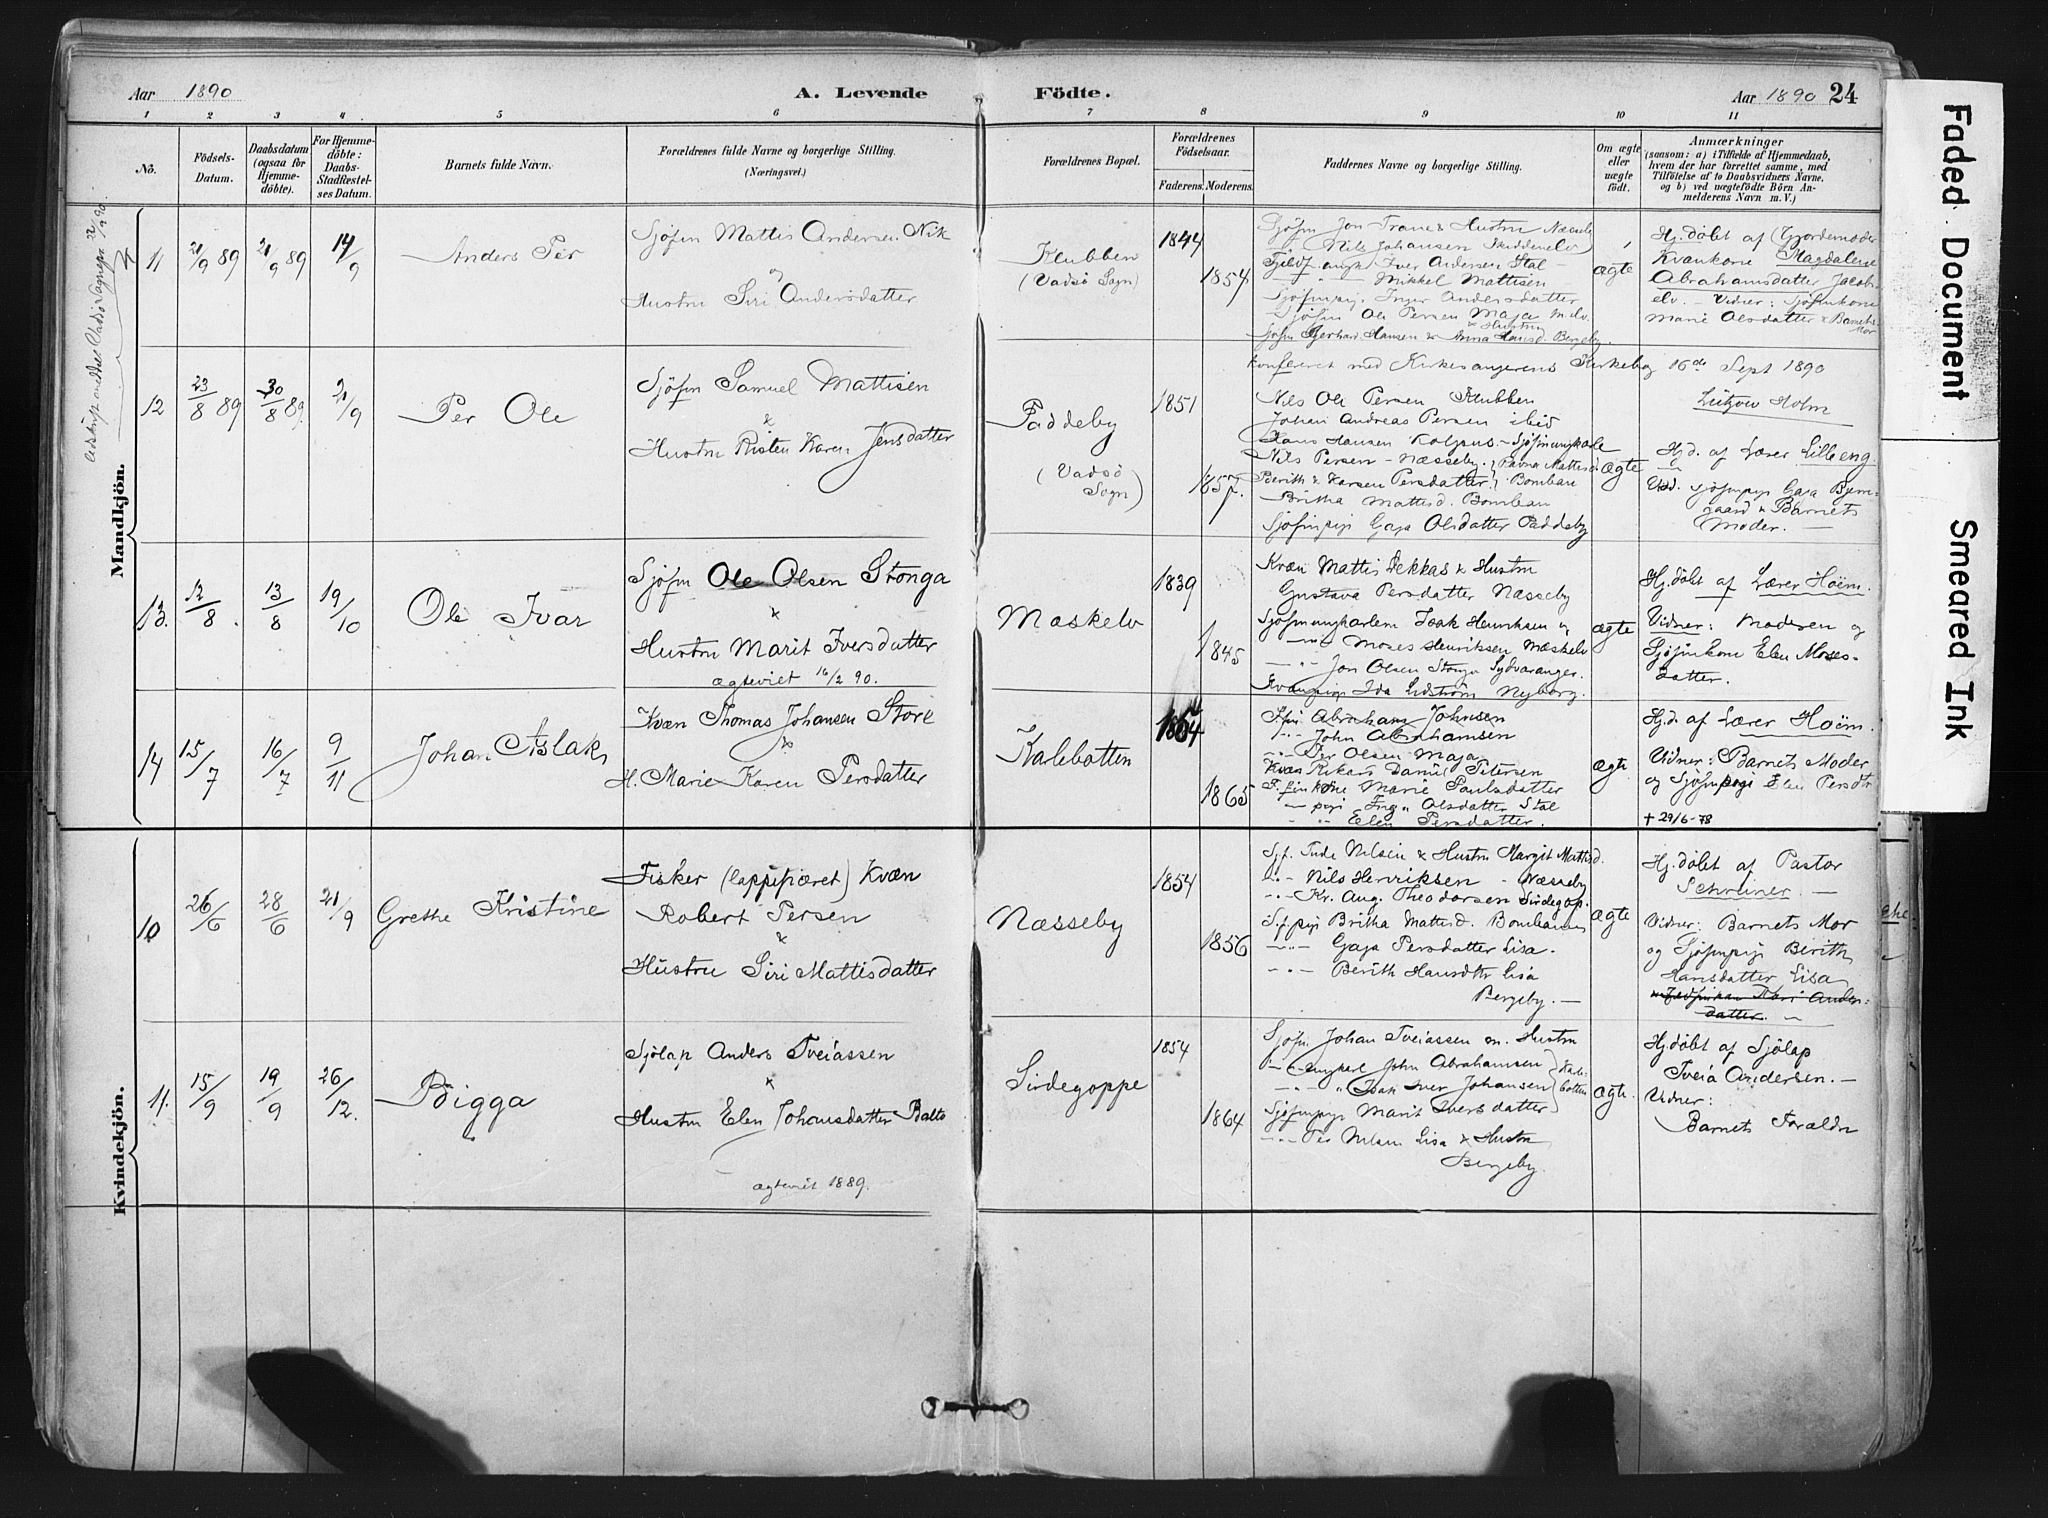 Aar 1890
A. Levende Födte.
Aar 1890 24
1 2 3 4 5 6 7 8 9 10 11
No.
Födsels-Datum.
Daabsdatum (ogsaa for Hjemme-döbte).
For Hjemme-döbte: Daabs-Stadfæstel-ses Datum.
Barnets fulde Navn.
Forældrenes fulde Navne og borgerlige Stilling.
(Næringsvei.)
Forældrenes Bopæl.
Forældrenes Födselsaar.
Faderens. Moderens.
Faddernes Navne og borgerlige Stilling.
Om ægte eller uægte födt.
Anmærkninger
(saasom: a) i Tilfælde af Hjemmedaab,
hvem der har forrettet samme, med
Tilföielse af to Daabsvidners Navne.
og b) ved uægtefödte Börn An-
melderens Navn m. V.)
Mandkjön.
11 21/9 89 21/9 89 14/9
Anders Per
Sjöfin Mattis Andersen Nik
Hustru Siri Andersdatter
Klubben
(Vadsö Sogn)
1844
1854
Sjöfin Jon Trane & Hustru Næsseby
Nils Johansen
Iver Andersen Stal
Mikkel Mattisen
Sjöfinpig. Inger Andersdatter
Sjöfin Ole Persen Maja
& Hustru
Sjöfin Gerhard Hansen & Anna Hansd. Bergeby.
ægte
Hj.döbt af Gjordemoder
Kvænkone Magdalene
Abrahamsdatter Jacobs-
elv. - Vidner: Sjöfinkone
Marie Olsdatter & Barnets
Mor
Konfereret med Kirkesangerens Kirkebog 16de Sept 1890
Lützow Holm
12 23/8 89 30/8 89 21/9
Per Ole
Sjöfin Samuel Mattisen
&
Hustru Risten Karen Jensdatter
Paddeby
(Vadsö Sogn)
1851
1857.
Nils Ole Persen Klubben
Johan Andreas Persen ibid
Hans Hansen - Sjöfinungkarle
Nils Persen - Næsseby.
Berith & Karen Persdatter, Bomban
Britha Mattisd. Bomban
Sjöfinpige Gaja Olsdatter Paddeby
ægte
Hjd. af Lærer Lilleeng
Vid. Sjöfinpige Gaja Bjern-
gaard & Barnets
Moder. -
13. 12/8. 13/8 19/10
Ole Ivar
Sjöfin Ole Olsen Stonga
&
Hustru Marit Iversdatter
ægteviet 16/2 90.
Mæskelv
1839
1845
Kvæn Mattis Pekkas & Hustru
Gustava Persdatter Næsseby
Sjöfinungkarlene Isak Henriksen og
Moses Henriksen Mæskelv
Jon Olsen Stonga Sydvaranger.
Kvænpige Ida Lidström Nyborg.
ægte
Hj.döbt af Lærer Hoëm.
Vidner: Moderen og
Sjöfinkone Elen Moses-
datter.
14 15/7 16/7 9/11
Johan Aslak
Kvæn Thomas Johansen Store
&
H. Marie Karen Persdatter
Kalebotten
1865
Abraham Johnsen
John Abrahamsen
Per Olsen Maja
Kvæn Rikard Daniel Petersen
Marie Paulsdatter
Olsdatter Stal
Elen Persdatter.
ægte
Hjd. af Lærer Hoëm.
Vidner: Barnets Moder
og Sjöfinpige Elen Persdtr
+ 29/6-78
Kvindekjön.
10 26/6 28/6 21/9
Grethe Kristine
Fisker (lappefiæret) Kvæn
Robert Persen
&
Hustru Siri Mattisdatter
Næsseby
1854
1856
Sjf. Tude Nilsen & Hustru Margit Mattisd.
Nils Henriksen - Næsseby
Kr. Aug. Theodorsen Sirdegop.
S.f.pige Britha Mattisd. Bombanes
Gaja Persdatter Lisa.
Berith Hansdtr Lisa
Bergeby. -
ægte
Hj.döbt af Pastor
Schreiner. -
Vidner: Barnets Mor
og Sjöfinpige Berith
Hansdatter Lisa
11. 15/9 19/9 26/12.
Bigga
Sjölap Anders Tveiassen
&
Hustru Elen Johansdatter Balto
ægteviet 1889.
Sirdegoppe
1854
1864
Sjöfin Johan Tveiassen m. Hustru
John Abrahamsen
Isak Iver Johansen
Kale-
botten
Sjöfinpige Marit Iversdatter
Per Nilsen Lisa & Hustru
Bergeby.
ægte.
Hj.döbt af Sjölap
Tveia Andersen. -
Vidner:
Barnets Forældre
Faded Document
Smeared Ink